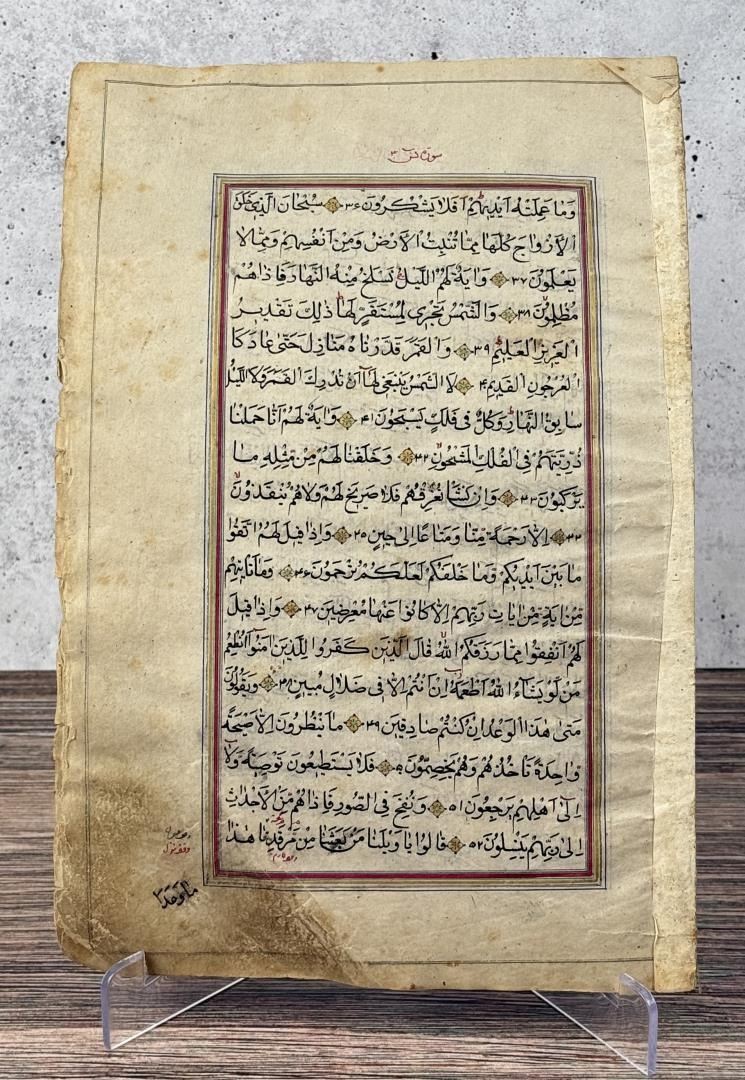 سورة يس
وَمَا عَمِلَتْهُ اَيْدِيهِمْ اَفَلَا يَشْكُرُونَ ٣۶ سُبْحَانَ الَّذِى خَلَقَ
الْاَزْوَاجَ كُلَّهَا مِمَّا تُنْبِتُ الْاَرْضُ وَمِنْ اَنْفُسِهِمْ وَمِمَّا لَا
يَعْلَمُونَ ٣٧ وَاٰيَةٌ لَهُمُ اللَّيْلُ نَسْلَخُ مِنْهُ النَّهَارَ فَاِذَا هُمْ
مُظْلِمُونَ ٣٨ وَالشَّمْسُ تَجْرِى لِمُسْتَقَرٍّ لَهَا ذٰلِكَ تَقْدِيرُ
الْعَزِيزِ الْعَلِيمِ ٣٩ وَالْقَمَرَ قَدَّرْنَاهُ مَنَازِلَ حَتّٰى عَادَ كَا
الْعُرْجُونِ الْقَدِيمِ ۴ لَا الشَّمْسُ يَنْبَغِى لَهَا اَنْ تُدْرِكَ الْقَمَرَ وَلَا اللَّيْلُ
سَابِقُ النَّهَارِ وَكُلٌّ فِى فَلَكٍ يَسْبَحُونَ ۴١ وَاٰيَةٌ لَهُمْ اَنَّا حَمَلْنَا
ذُرِّيَّتَهُمْ فِى الْفُلْكِ الْمَشْحُونِ ۴٢ وَخَلَقْنَا لَهُمْ مِنْ مِثْلِهِ مَا
يَرْكَبُونَ ۴٣ وَاِنْ نَشَأْ نُغْرِقْهُمْ فَلَا صَرِيخَ لَهُمْ وَلَا هُمْ يُنْقَذُونَ
۴۴ اِلَّا رَحْمَةً مِنَّا وَمَتَاعًا اِلٰى حِينٍ ۴۵ وَاِذَا قِيلَ لَهُمُ اتَّقُوا
مَا بَيْنَ اَيْدِيكُمْ وَمَا خَلْفَكُمْ لَعَلَّكُمْ تُرْحَمُونَ ۴۶ وَمَا تَأْتِيهِمْ
مِنْ اٰيَةٍ مِنْ اٰيَاتِ رَبِّهِمْ اِلَّا كَانُوا عَنْهَا مُعْرِضِينَ ۴٧ وَاِذَا قِيلَ
لَهُمْ اَنْفِقُوا مِمَّا رَزَقَكُمُ اللّٰهُ قَالَ الَّذِينَ كَفَرُوا لِلَّذِينَ اٰمَنُوا اَنُطْعِمُ
مَنْ لَوْ يَشَاءُ اللّٰهُ اَطْعَمَهُ اِنْ اَنْتُمْ اِلَّا فِى ضَلَالٍ مُبِينٍ ۴٨ وَيَقُولُونَ
مَتٰى هٰذَا الْوَعْدُ اِنْ كُنْتُمْ صَادِقِينَ ۴٩ مَا يَنْظُرُونَ اِلَّا صَيْحَةً
وَاحِدَةً تَأْخُذُهُمْ وَهُمْ يَخِصِّمُونَ ۵ فَلَا يَسْتَطِيعُونَ تَوْصِيَةً وَلَا
اِلٰى اَهْلِهِمْ يَرْجِعُونَ ۵١ وَنُفِخَ فِى الصُّورِ فَاِذَا هُمْ مِنَ الْاَجْدَاثِ
اِلٰى رَبِّهِمْ يَنْسِلُونَ ۵٢ قَالُوا يَا وَيْلَنَا مَنْ بَعَثَنَا مِنْ مَرْقَدِنَا هٰذَا
مَا وَعَدَ